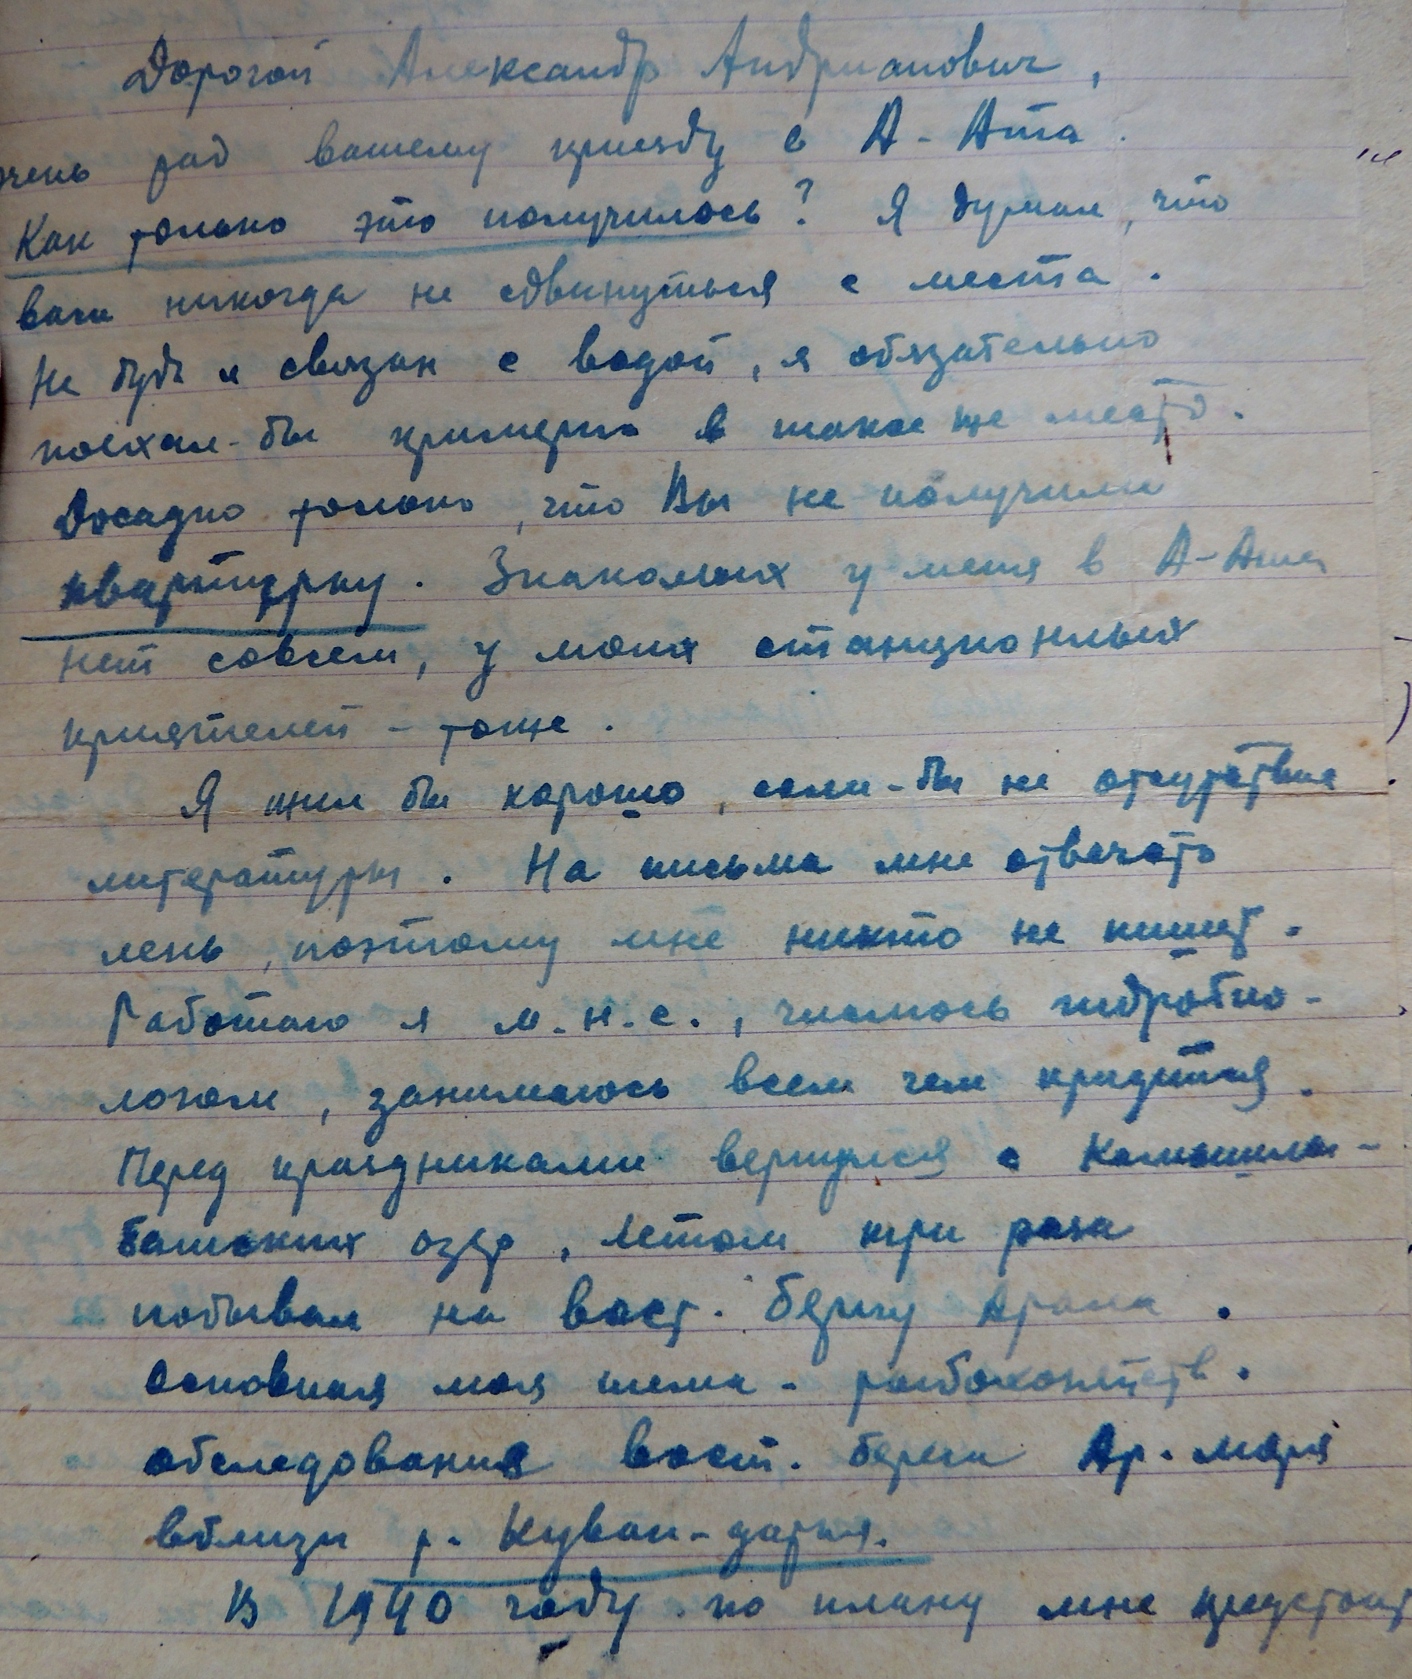 Дорогой Александр Андрианович,
очень рад вашему приезду в А-Ата.
Как только это получилось? Я думал, что
вам никогда не сдвинуться с места.
Не будь я связан с водой, я обязательно
поехал-бы примерно в такое же место.
Досадно только, что Вы не получили
квартирку. Знакомых у меня в А-Ата
нет совсем, у моих станционных
приятелей - тоже.
Я жил бы хорошо, если-бы не отсутствие
литературы. На письма мне отвечать
лень, поэтому мне никто не пишет.
Работаю я м.н.с., числюсь гидробио-
логом, занимаюсь всем чем придется.
Перед праздниками вернулся с Камышлы-
башских озер, летом три раза
побывал на вост. берегу Арала.
Основная моя тема - рыбохозяйств.
обследования вост. берега Ар. моря
вблизи р. Куван-дарья.
В 1940 году по плану мне предстоит